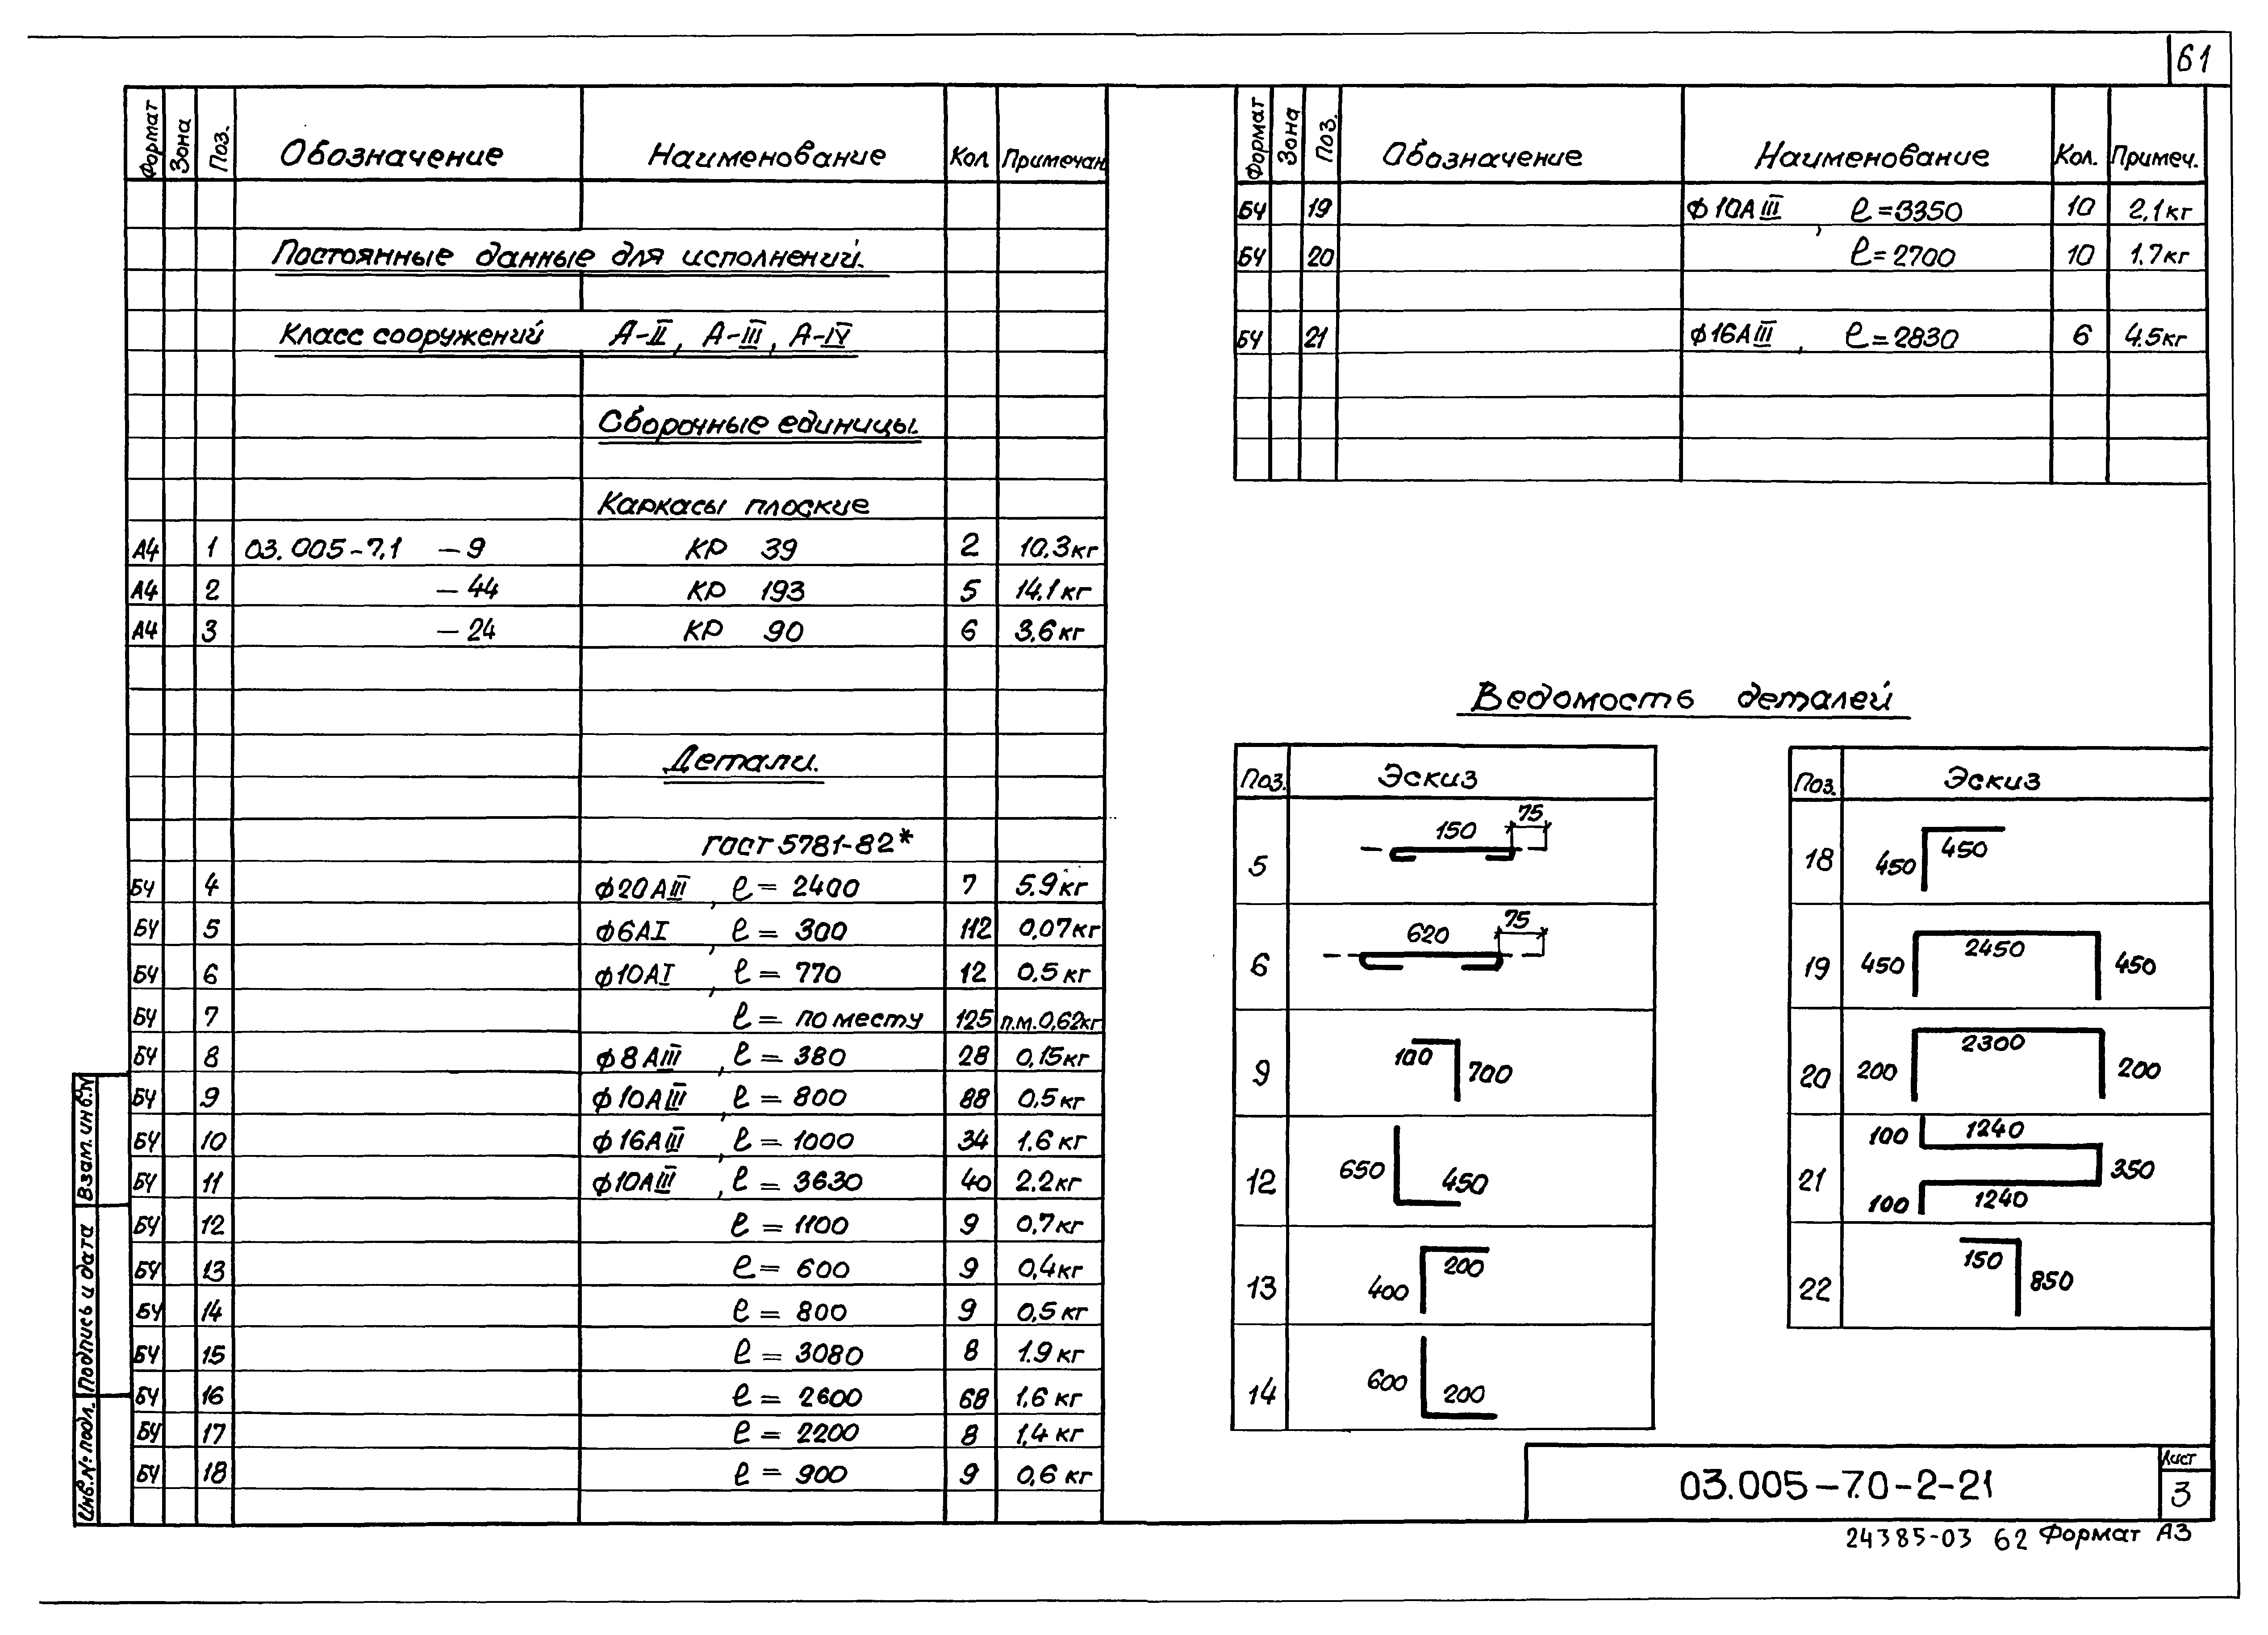 61
Формат Зона Поз. Обозначение Наименование Кол Примечан
Постоянные данные для исполнений.
Класс сооружений А-II, А-III, А-IV
Сборочные единицы.
Каркасы плоские
А4 1 03.005-7.1 -9 КР 39 2 10.3кг
А4 2 -44 КР 193 5 14.1кг
А4 3 -24 КР 90 6 3.6кг
Детали.
ГОСТ 5781-82*
БЧ 4 Ф20АIII, ℓ= 2400 7 5.9кг
БЧ 5 Ф6АI, ℓ= 300 112 0,07кг
БЧ 6 Ф10АI, ℓ= 770 12 0.5кг
БЧ 7 ℓ= по месту 125 п.м.0,62кг
БЧ 8 Ф8АIII, ℓ= 380 28 0,15кг
БЧ 9 Ф10АIII, ℓ= 800 88 0,5кг
БЧ 10 Ф16АIII, ℓ= 1000 34 1.6кг
БЧ 11 Ф10АIII, ℓ= 3630 40 2.2кг
БЧ 12 ℓ= 1100 9 0,7кг
БЧ 13 ℓ= 600 9 0,4кг
БЧ 14 ℓ= 800 9 0,5кг
БЧ 15 ℓ= 3080 8 1.9кг
БЧ 16 ℓ= 2600 68 1,6кг
БЧ 17 ℓ= 2200 8 1,4кг
БЧ 18 ℓ= 900 9 0,6кг
Взам. инв.N
Подпись и дата
Инв.№ подл.
Формат Зона Поз. Обозначение Наименование Кол. Примеч.
БЧ 19 Ф10АIII, ℓ=3350 10 2,1кг
БЧ 20 ℓ=2700 10 1.7кг
БЧ 21 Ф16АIII, ℓ=2830 6 4.5кг
Ведомость деталей
Поз. Эскиз
5 150 75
6 620 75
9 100 700
12 650 450
13 400 200
14 600 200
Поз. Эскиз
18 450 450
19 450 2450 450
20 200 2300 200
21 100 1240 350 100 1240
22 150 850
03.005-7.0-2-21
Лист
3
24385-03 62 Формат А3